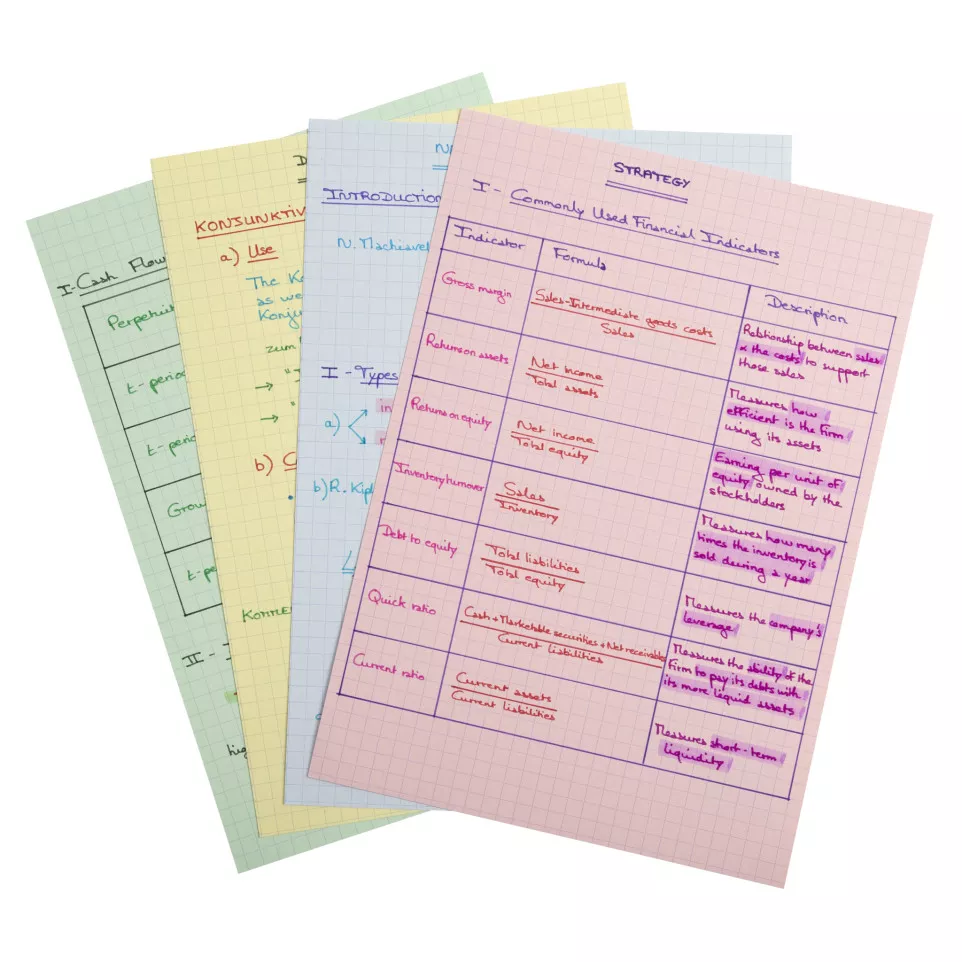 STRATEGY
I - Commonly Used Financial Indicators
Indicator
Formula
Description
Gross margin
Sales-Intermediate goods costs
Sales
Relationship between sales
& the costs to support
those sales
Returns on assets
Net income
Total assets
Measures how
efficient is the firm
using its assets
Returns on equity
Net income
Total equity
Earning per unit of
equity owned by the
stockholders
Inventory turnover
Sales
Inventory
Measures how many
times the inventory is
sold during a year
Debt to equity
Total liabilities
Total equity
Measures the company's
leverage
Quick ratio
Cash + Marketable securities + Net receivables
Current liabilities
Measures the ability of the
firm to pay its debts with
its more liquid assets
Current ratio
Current assets
Current liabilities
Measures short-term
liquidity
INTRODUCTION
N. Machiavel
I - Types
in
a)
b) R. Kipl
D
KONJUNKTIV
a) Use
The Ko
as we
Konju
zum
→ "I
→ "
b) C
KORRE
I - Cash Flow
Perpetuit
t - period
t - perio
Grow
t - pe
II -
hig